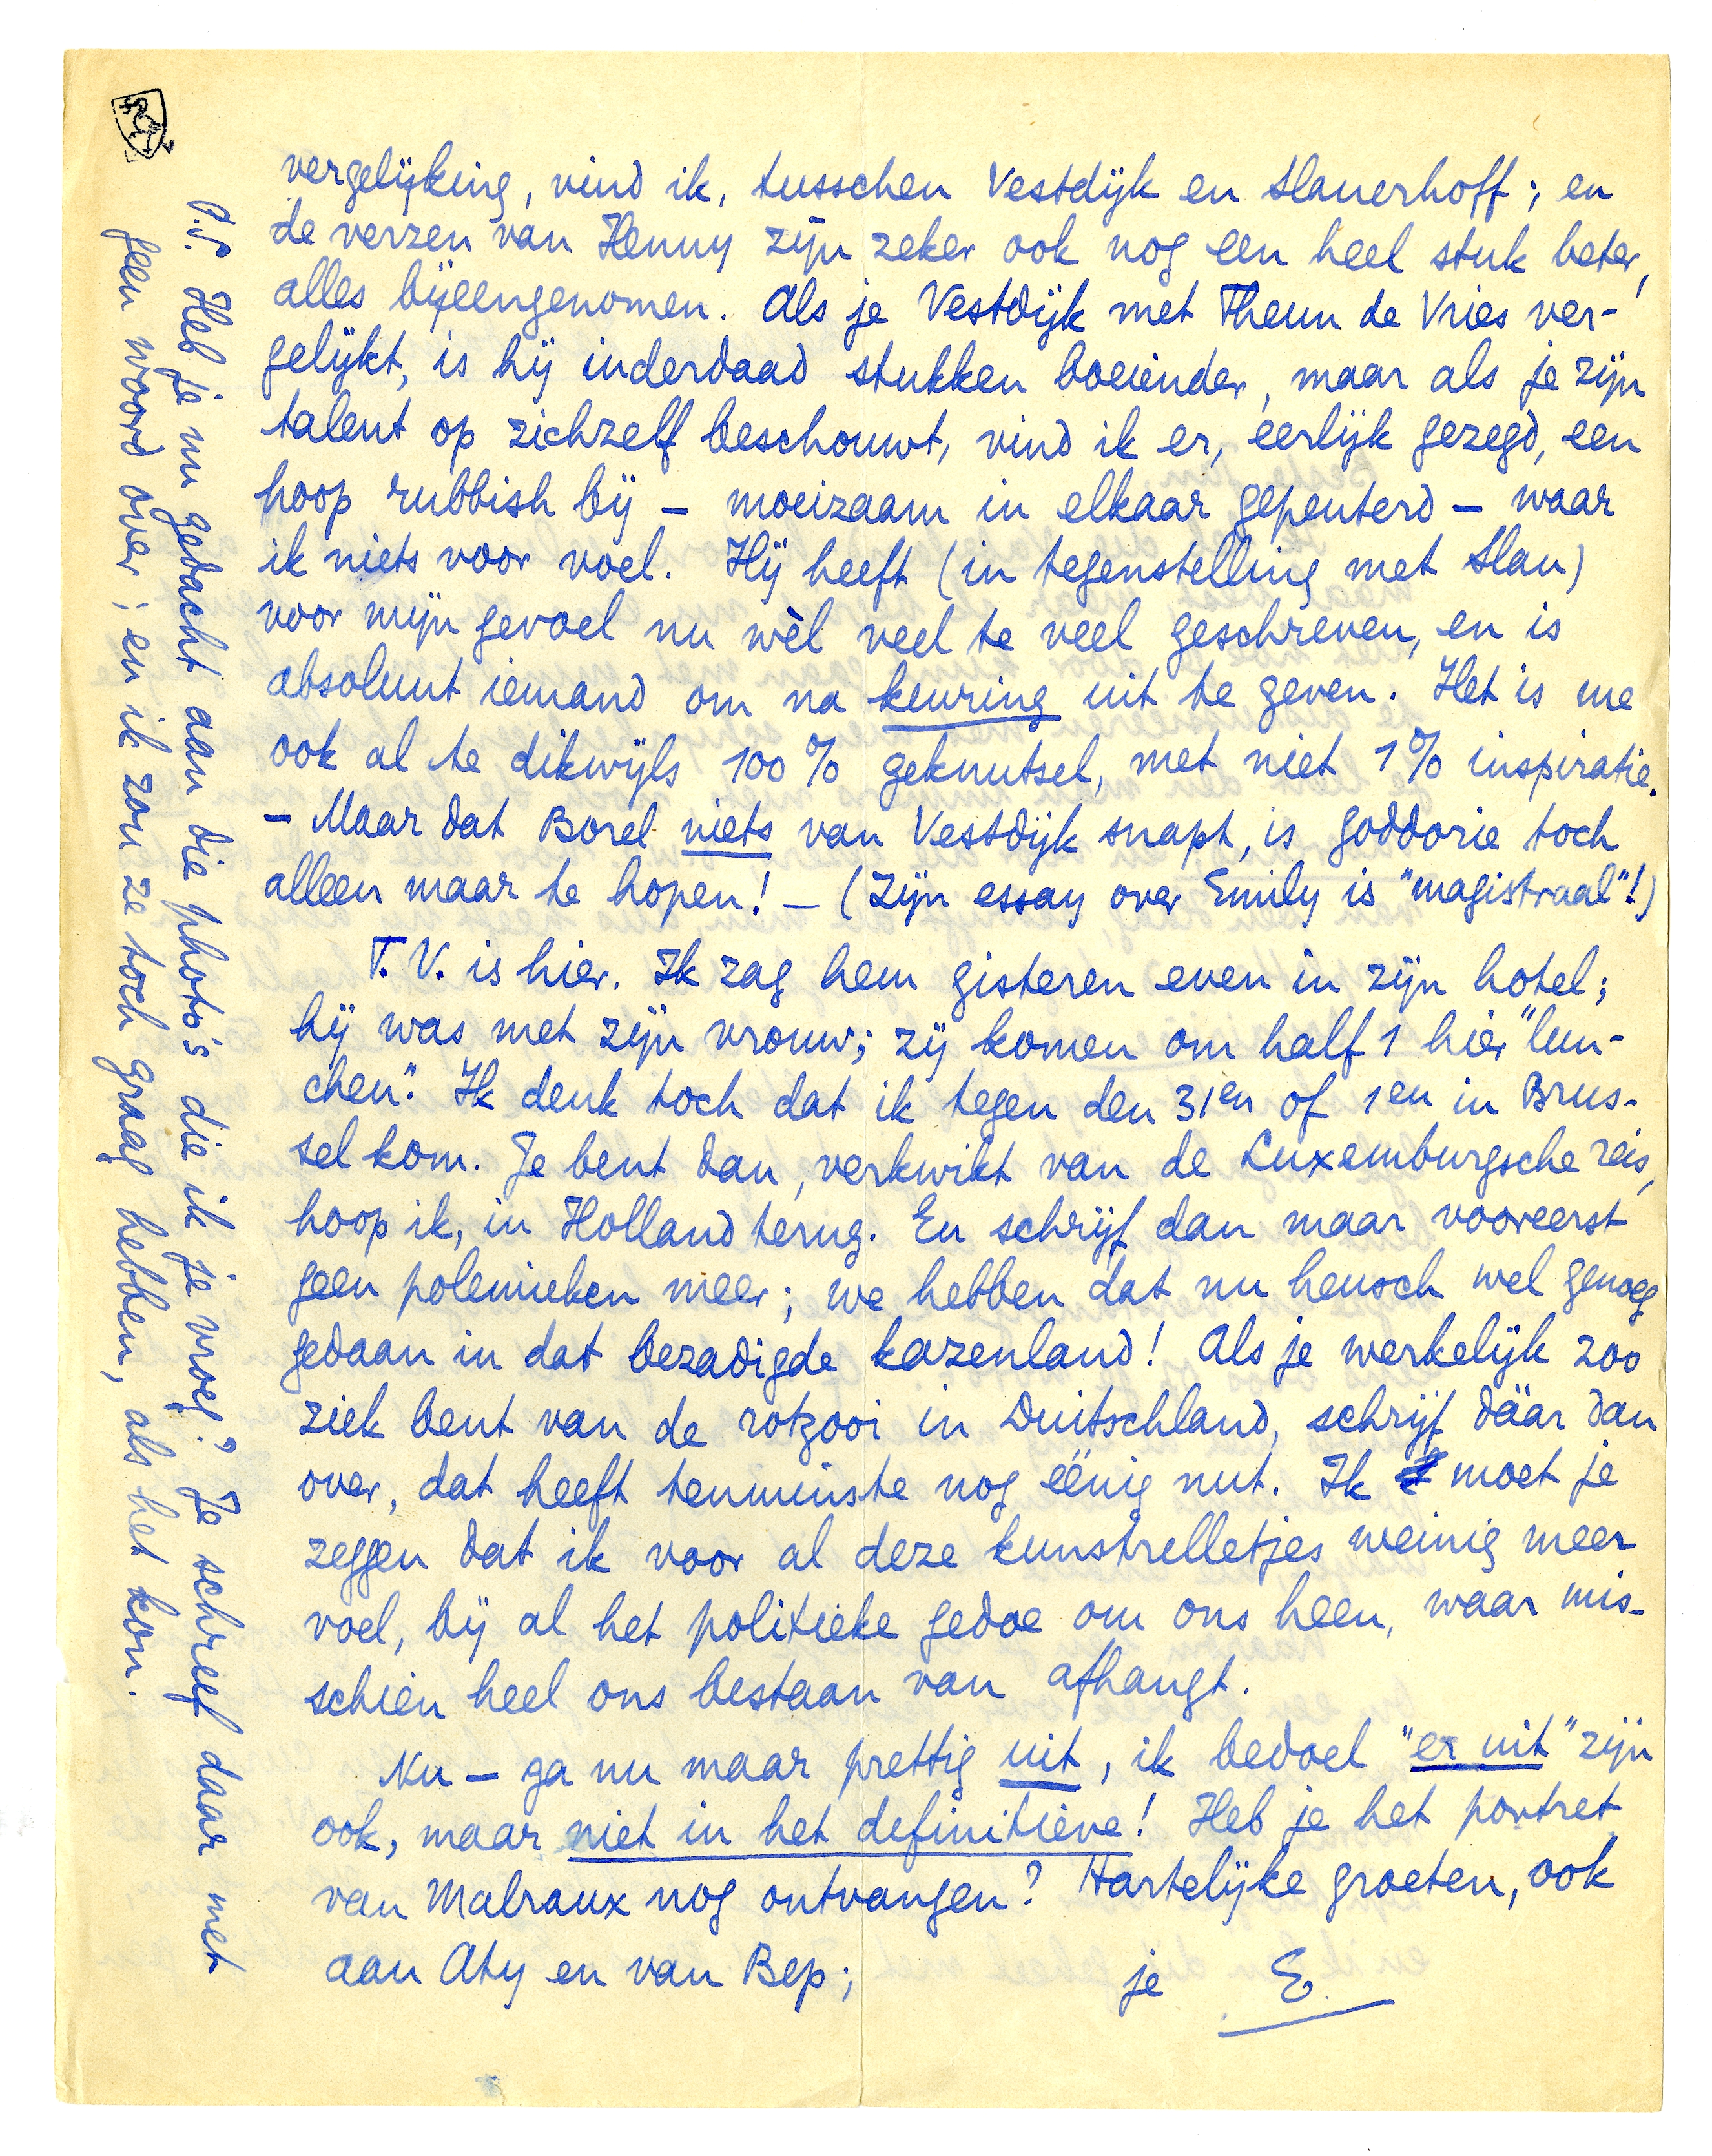 vergelijking, vind ik, tusschen Vestdijk en Slauerhoff; en
de verzen van Henny zijn zeker ook nog een heel stuk beter,
alles bijeengenomen. Als je Vestdijk met Theun de Vries ver-
gelijkt, is hij inderdaad stukken boeiender, maar als je zijn
talent op zichzelf beschouwt, vind ik er, eerlijk gezegd, een
hoop rubbish bij – moeizaam in elkaar gepeuterd – waar
ik niets voor voel. Hij heeft (in tegenstelling met Slau)
voor mijn gevoel nu wèl veel te veel geschreven, en is
absoluut iemand om na keuring uit te geven. Het is me
ook al te dikwijls 100% geknutsel, met niet 1% inspiratie.
– Maar dat Borel niets van Vestdijk snapt, is goddorie toch
alleen maar te hopen! – (Zijn essay over Emily is "magistraal"!)
T.V. is hier. Ik zag hem gisteren even in zijn hotel;
hij was met zijn vrouw; zij komen om half 1 hier "lun-
chen". Ik denk toch dat ik tegen den 31en of 1en in Brus-
sel kom. Je bent dan, verkwikt van de Luxemburgsche reis,
hoop ik, in Holland terug. En schrijf dan maar vooreerst
geen polemieken meer; we hebben dat nu heusch wel genoeg
gedaan in dat bezadigde kazenland! Als je werkelijk zoo
ziek bent van de rotzooi in Duitschland, schrijf dáár dan
over, dat heeft tenminste nog éénig nut. Ik moet je
zeggen dat ik voor al deze kunstrelletjes weinig meer
voel, bij al het politieke gedoe om ons heen, waar mis-
schien heel ons bestaan van afhangt.
Nu – ga nu maar prettig uit, ik bedoel "er uit" zijn
ook, maar niet in het definitieve! Heb je het portret
van Malraux nog ontvangen? Hartelijke groeten, ook
aan Aty en van Bep;
je E.
P.S. Heb je nu gedacht aan die photo's die ik je vroeg? Je schreef daar met
geen woord over; en ik zou ze toch graag hebben, als het kon.